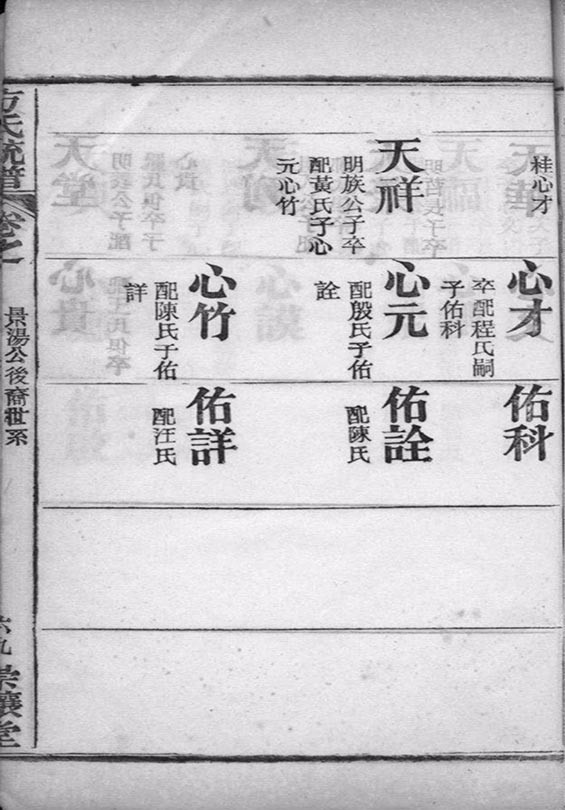 桂心才
天祥
明族公子卒
配黃氏子心
元心竹
心才
卒配程氏嗣
子佑科
心元
配殷氏子佑
詮
心竹
配陳氏子佑
詳
佑科
佑詮
配陳氏
佑詳
配汪氏
方氏統譜
卷之一
景湯公後裔世系
六九